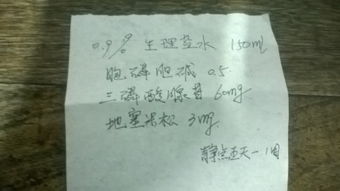 0.9% 生理盐水 150ml
胞磷胆碱 0.5
三磷酸腺苷 60mg
地塞米松 3mg
天一